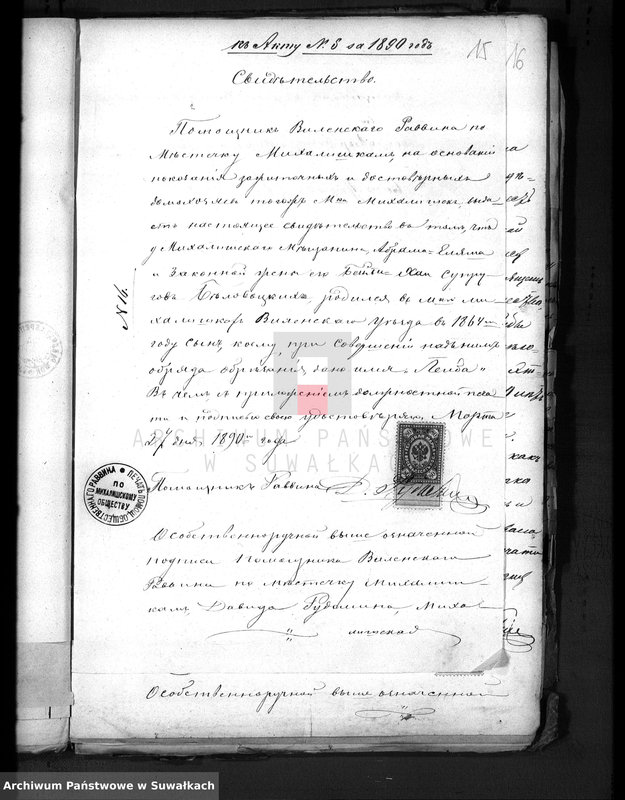 къ Акту № 8 за 1890 годъ
15 16
Свидѣтельство.
Помощникъ Виленскаго Раввина по
Мѣстечку Михалишкамъ, на основаніи
показанія зажиточныхъ и достовѣрныхъ
домохозяевъ тогожъ М-ка Михалишекъ, выда-
етъ настоящее свидѣтельство въ томъ, что
у Михалишскаго Мѣщанина, Абрама-Еліяша
и Законной жены его Бейлы-Хаи Супру-
говъ Бѣловоцкихъ, родился въ М-кѣ Ми-
халишкахъ Виленскаго Уѣзда въ 1864 мъ
году сынъ, кому, при совершеніи надъ нимъ
обряда обрѣзанія, дано имя „Лейба"
Въ чемъ съ приложеніемъ должностной печа
ти и подписью свою удостовѣряю, Марта
27 дня 1890 года
№ 16.
Помощникъ Раввина Д. Гудалинъ
ПЕЧАТЬ ПОМОЩ. ОБЩЕСТВЕННАГО РАВВИНА
ПО МИХАЛИШСКОМУ ОБЩЕСТВУ
ARCHIWUM PAŃSTWOWE
W SUWAŁKACH
Собственноручной выше означенной
подписи Помощника Виленскаго
Раввина по мѣстечку Михалиш-
камъ, Давида Гудалина, Миха-
лишская
Собственноручной выше означенной
Archiwum Państwowe w Suwałkach